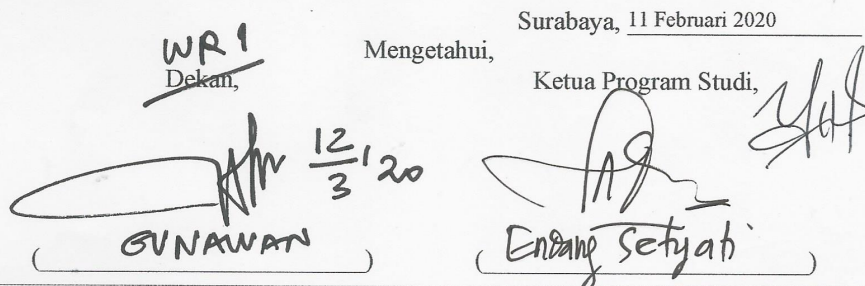 Surabaya, 11 Februari 2020
WR 1
Mengetahui,
Dekan,
Ketua Program Studi,
12/3 '20
( GUNAWAN )
( Endang Setyati )